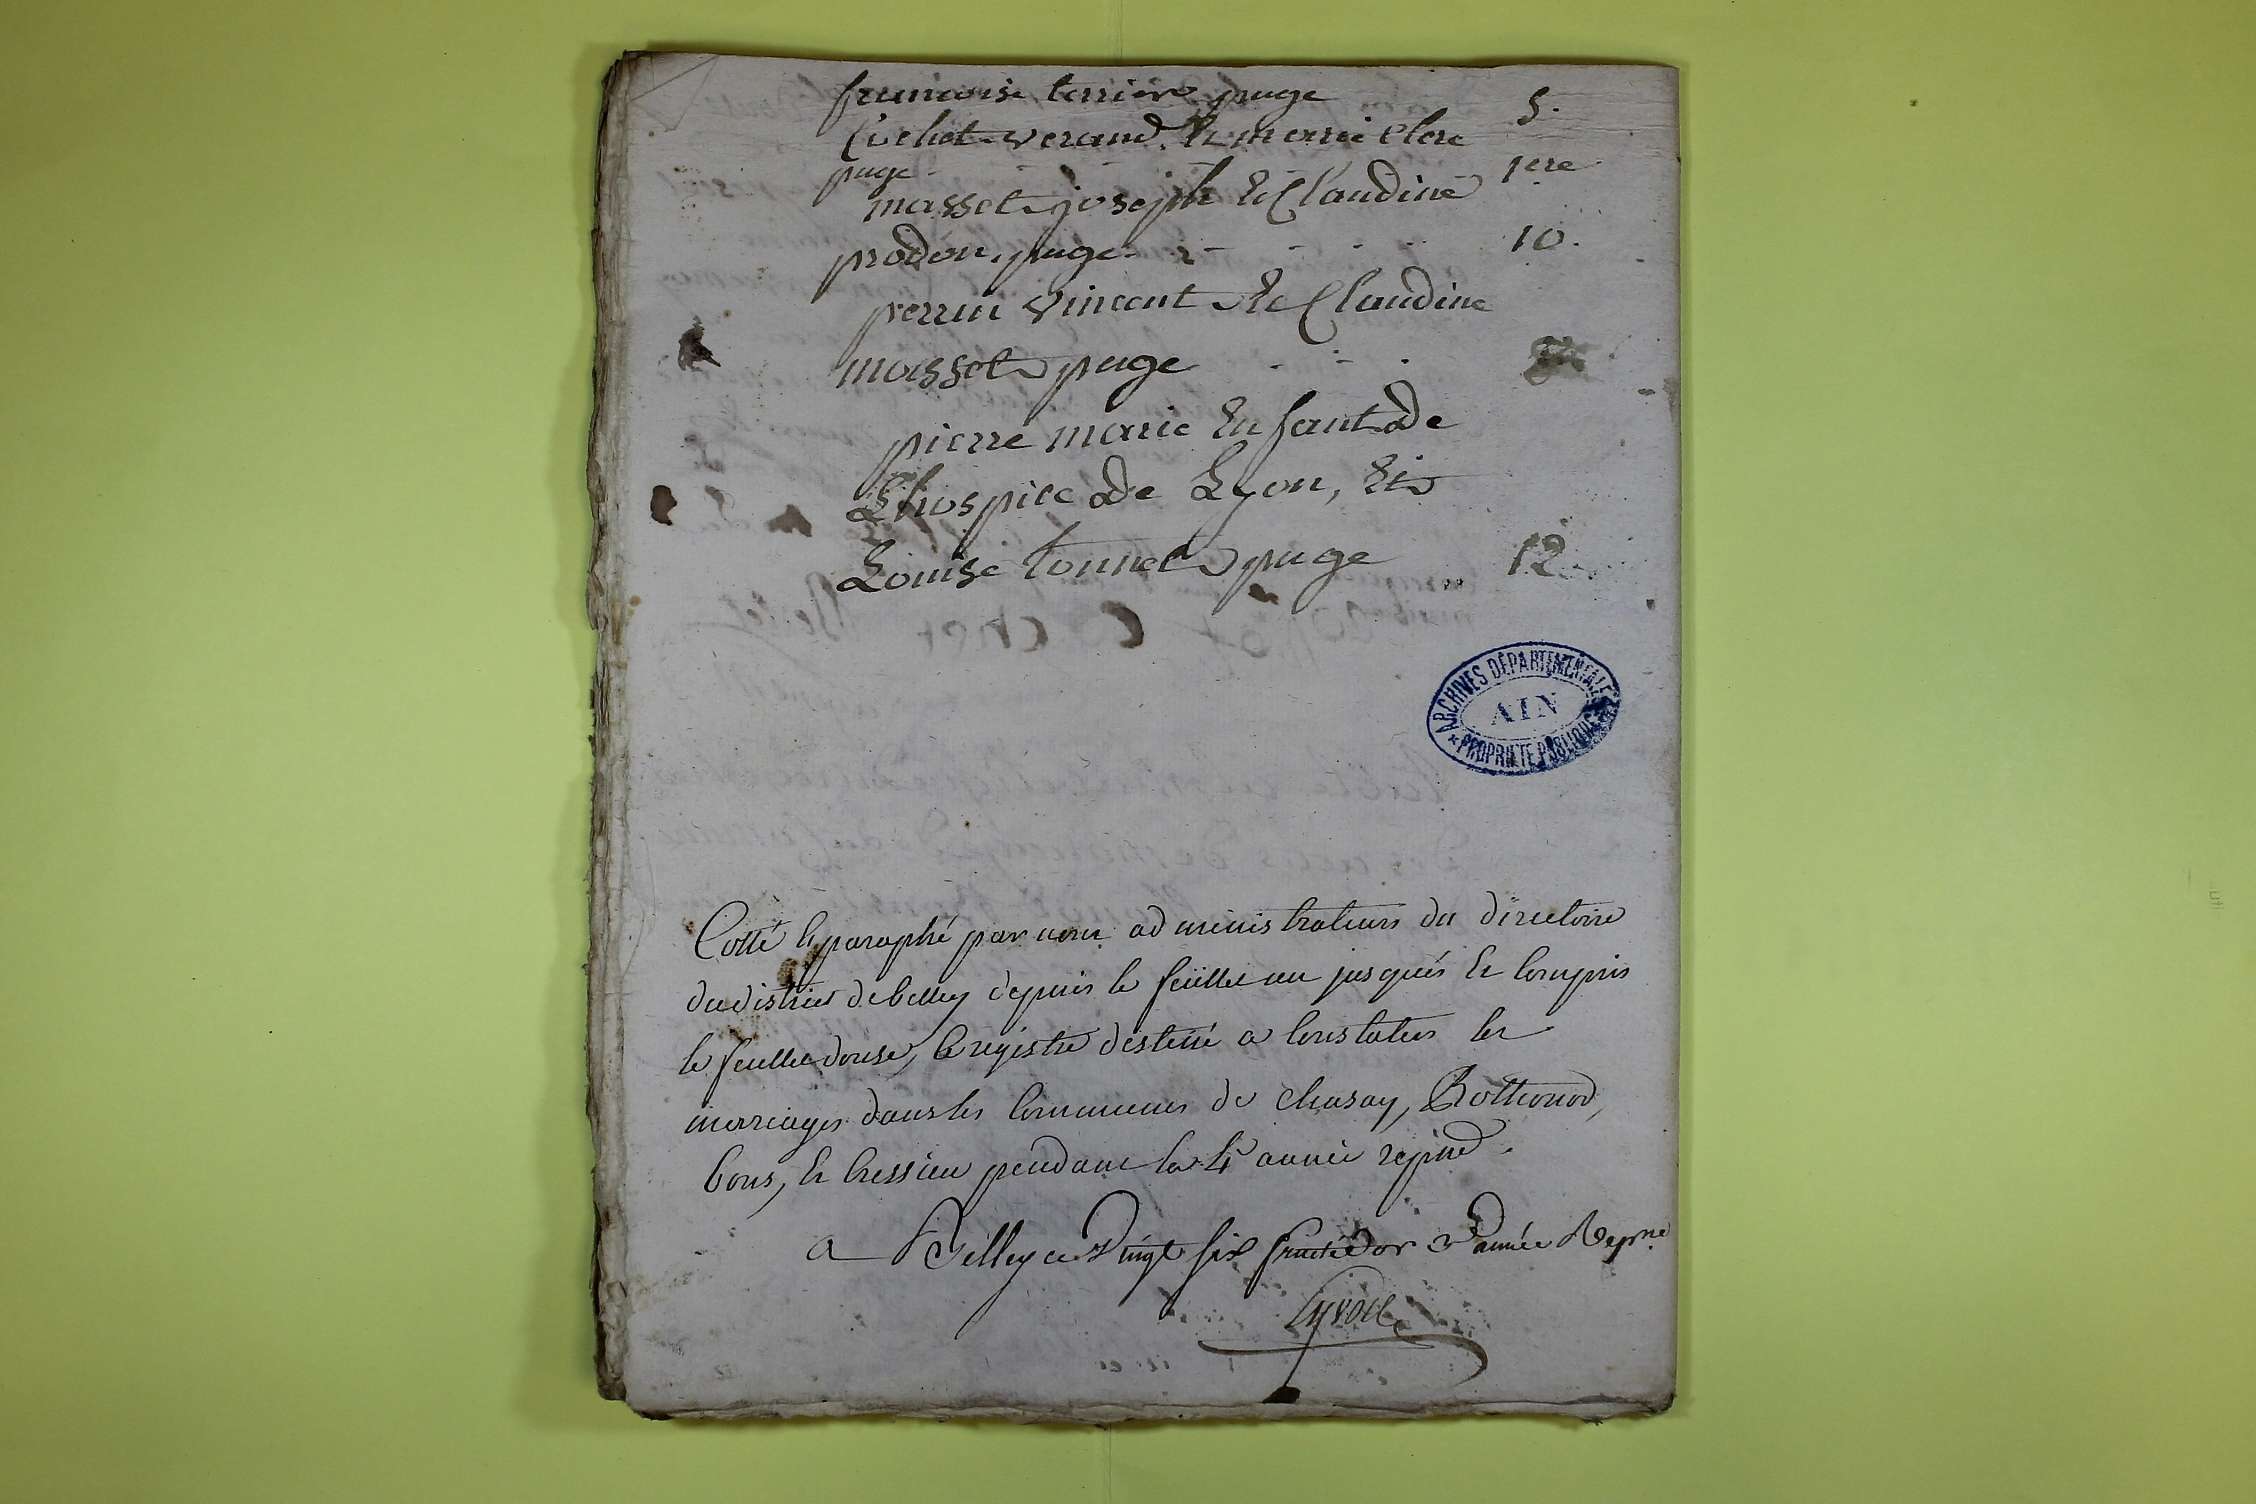 francoise terrier page 5.
Cuchet verand. & marie Clerc
page 1ere
masset joseph & Claudine
prodon, page 10.
perrin vincent & Claudine
masset page
pierre marie Enfant de
Lhospice de Lyon, Et
Louise tonnet page 12
ARCHIVES DÉPARTEMENTALES
AIN
* PROPRIÉTÉ PUBLIQUE *
Cotté & paraphé par nous administrateurs du directoire
du district de belley depuis le feuillet un jusqués & compris
le feuillet douse, le registre destiné a constater les
marriages dans les Communes de chasay, Rothonod,
bons, & bressieu pendant la 4e année repne.
a Belley ce Vingt six fructidor 3e année Repne